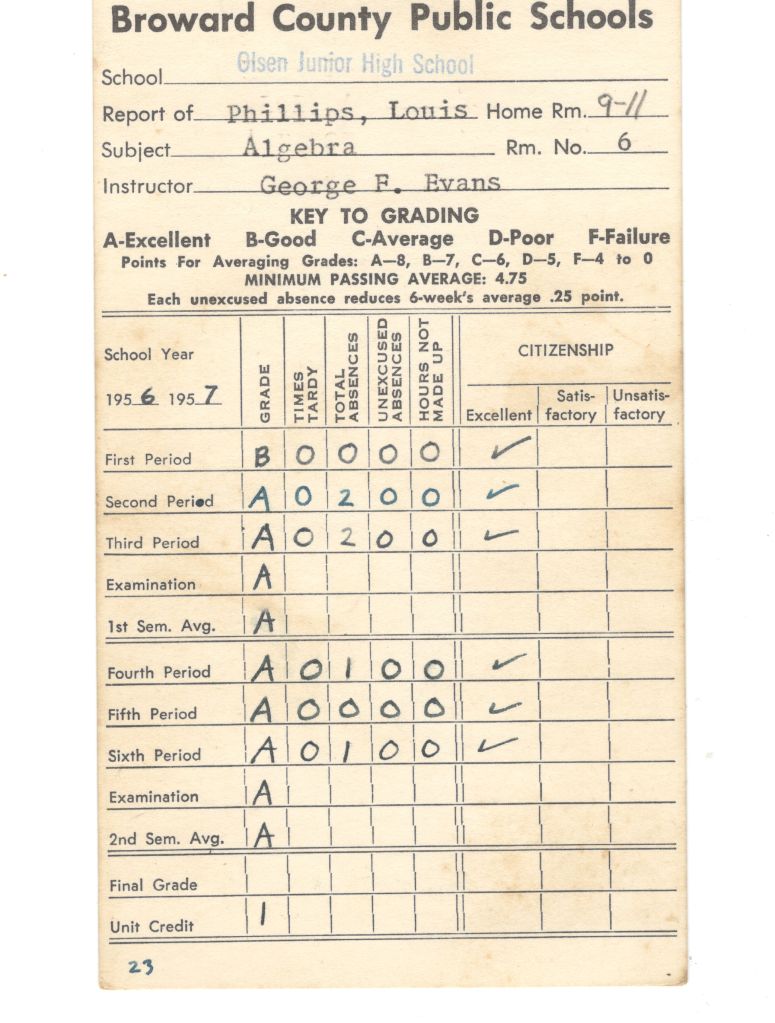 Broward County Public Schools
School Olsen Junior High School
Report of Phillips, Louis Home Rm. 9-11
Subject Algebra Rm. No. 6
Instructor George F. Evans
KEY TO GRADING
A-Excellent B-Good C-Average D-Poor F-Failure
Points For Averaging Grades: A—8, B—7, C—6, D—5, F—4 to 0
MINIMUM PASSING AVERAGE: 4.75
Each unexcused absence reduces 6-week's average .25 point.
School Year
1956 1957
GRADE
TIMES TARDY
TOTAL ABSENCES
UNEXCUSED ABSENCES
HOURS NOT MADE UP
CITIZENSHIP
Excellent
Satis-
factory
Unsatis-
factory
First Period B 0 0 0 0 ✓
Second Period A 0 2 0 0 ✓
Third Period A 0 2 0 0 ✓
Examination A
1st Sem. Avg. A
Fourth Period A 0 1 0 0 ✓
Fifth Period A 0 0 0 0 ✓
Sixth Period A 0 1 0 0 ✓
Examination A
2nd Sem. Avg. A
Final Grade
Unit Credit 1
23